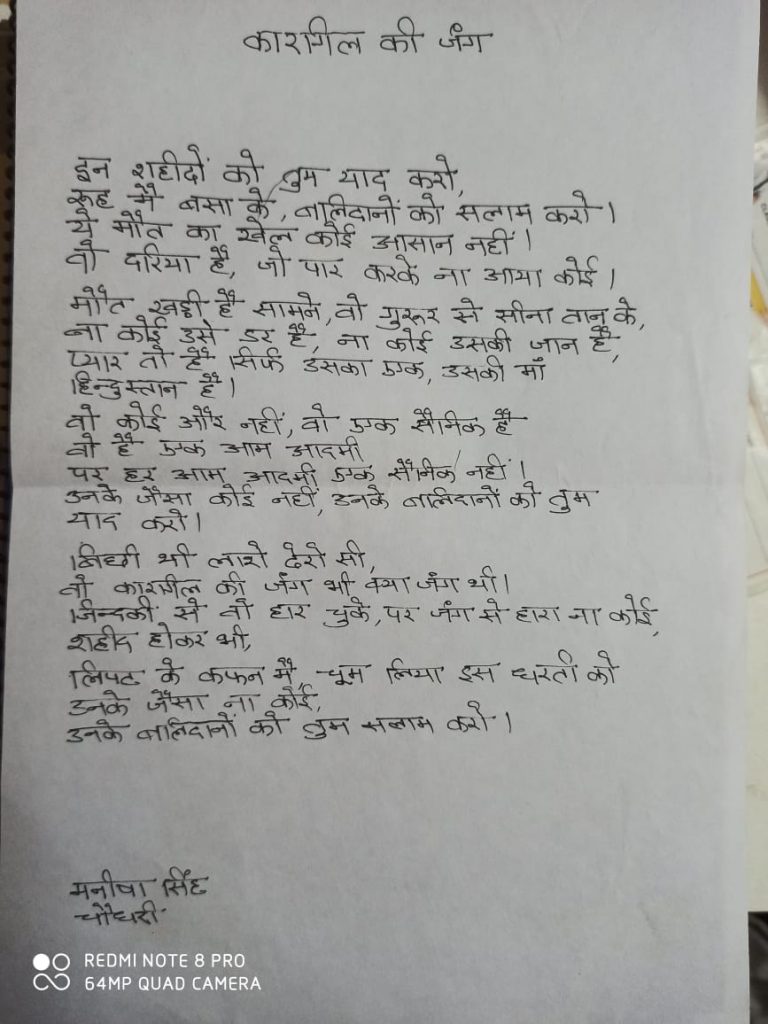 कारगिल की जंग
इन शहीदों को तुम याद करो,
रूह मै बसा के, बालिदानों को सलाम करो।
ये मौत का खेल कोई आसान नहीं।
वो दरिया है, जो पार करके ना आया कोई।
मौत खड़ी है सामने, वो गुरूर से सीना तान के,
ना कोई उसे डर है, ना कोई उसकी जान है,
प्यार तो है सिर्फ उसका एक, उसकी माँ
हिन्दुस्तान है।
वो कोई और नहीं, वो एक सैनिक है
वो है एक आम आदमी
पर हर आम आदमी एक सैनिक नहीं।
उनके जैसा कोई नहीं, उनके बालिदानों को तुम
याद करो।
बिछी थी लाशे ढेरो सी,
वो कारगील की जंग भी क्या जंग थी।
जिन्दकी से वो हार चुके, पर जंग से हारा ना कोई,
शहीद होकर भी,
लिपट के कफन मै, चूम लिया इस धरती को
उनके जैसा ना कोई,
उनके बालिदानों को तुम सलाम करो।
मनीषा सिंह
चौधरी
REDMI NOTE 8 PRO
64MP QUAD CAMERA